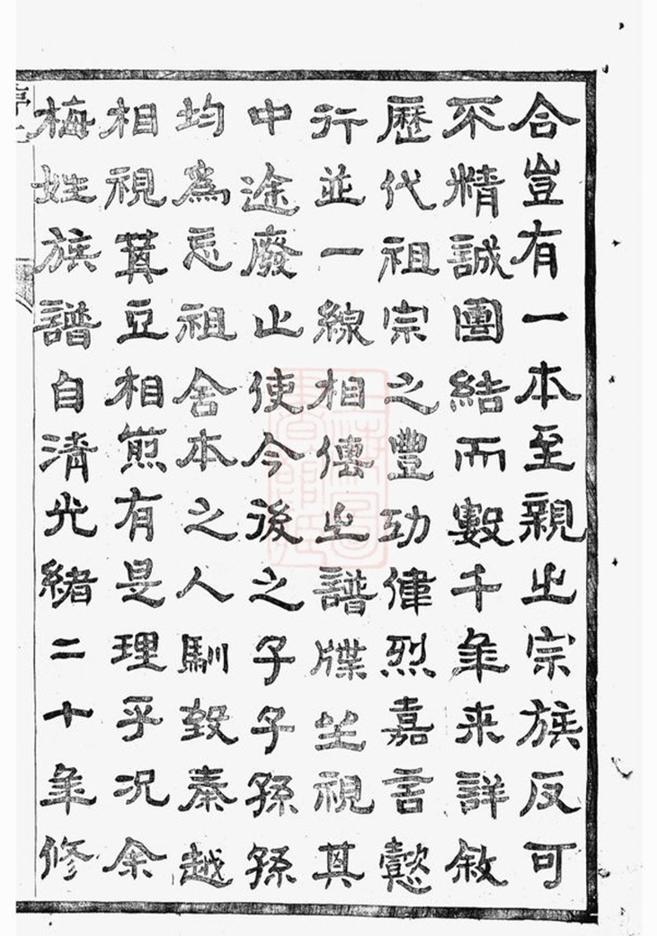 合豈有一本至親之宗族反可
不精誠團結而數千年来詳敘
歷代祖宗之豐功偉烈嘉言懿
行並一線相傳之譜牒坐視其
中途廢止使今後之子子孫孫
均為忘祖舍本之人馴致秦越
相視萁豆相煎有是理乎况余
梅姓族譜自清光緒二十年修